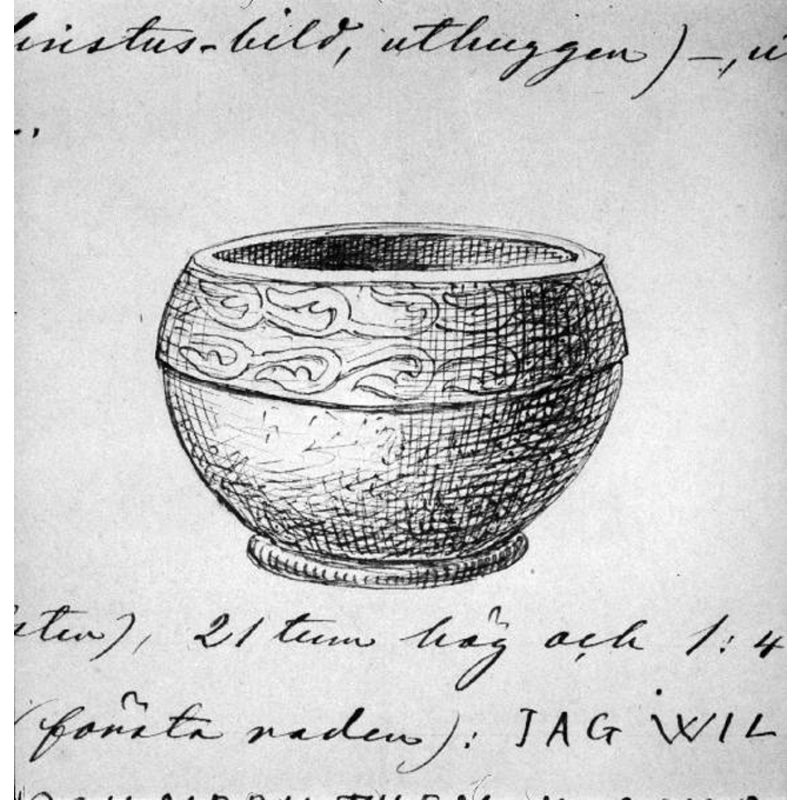 hristus-bild, uthuggen) –, i
..
sten), 21 tum hög och 1:4
(första raden): JAG WIL